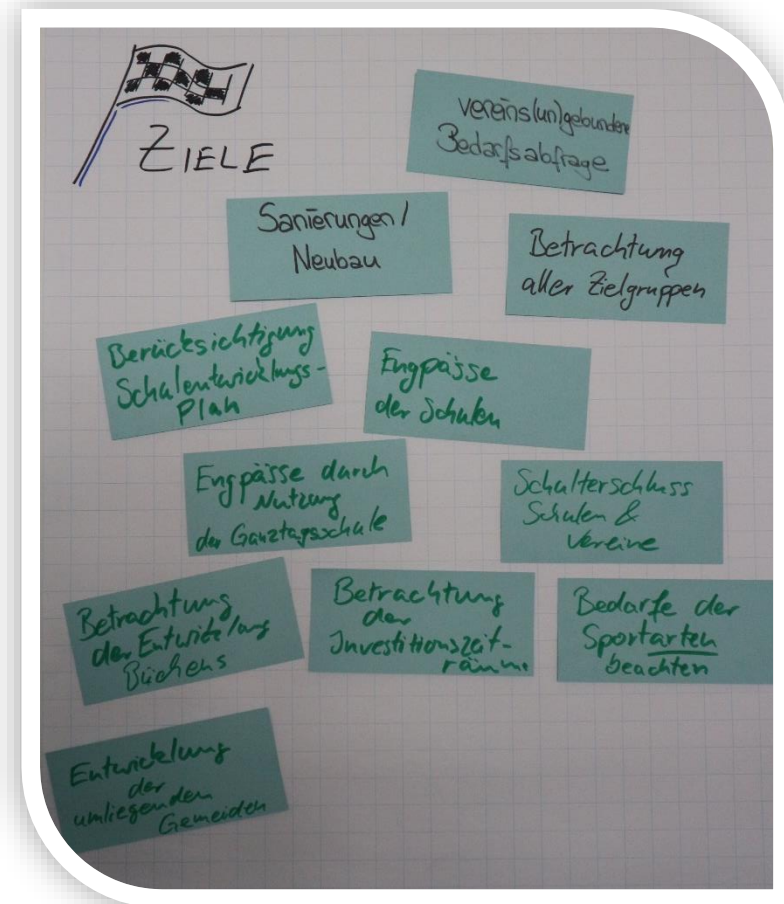 ZIELE
vereins(un)gebundene
Bedarfsabfrage
Sanierungen/
Neubau
Betrachtung
aller Zielgruppen
Berücksichtigung
Schulentwicklungs-
Plan
Engpässe
der Schulen
Engpässe durch
Nutzung
der Ganztagsschule
Schulterschluss
Schulen &
Vereine
Betrachtung
der Entwicklung
Büchens
Betrachtung
der
Investitionszeit-
räume
Bedarfe der
Sportarten
beachten
Entwicklung
der
umliegenden
Gemeiden